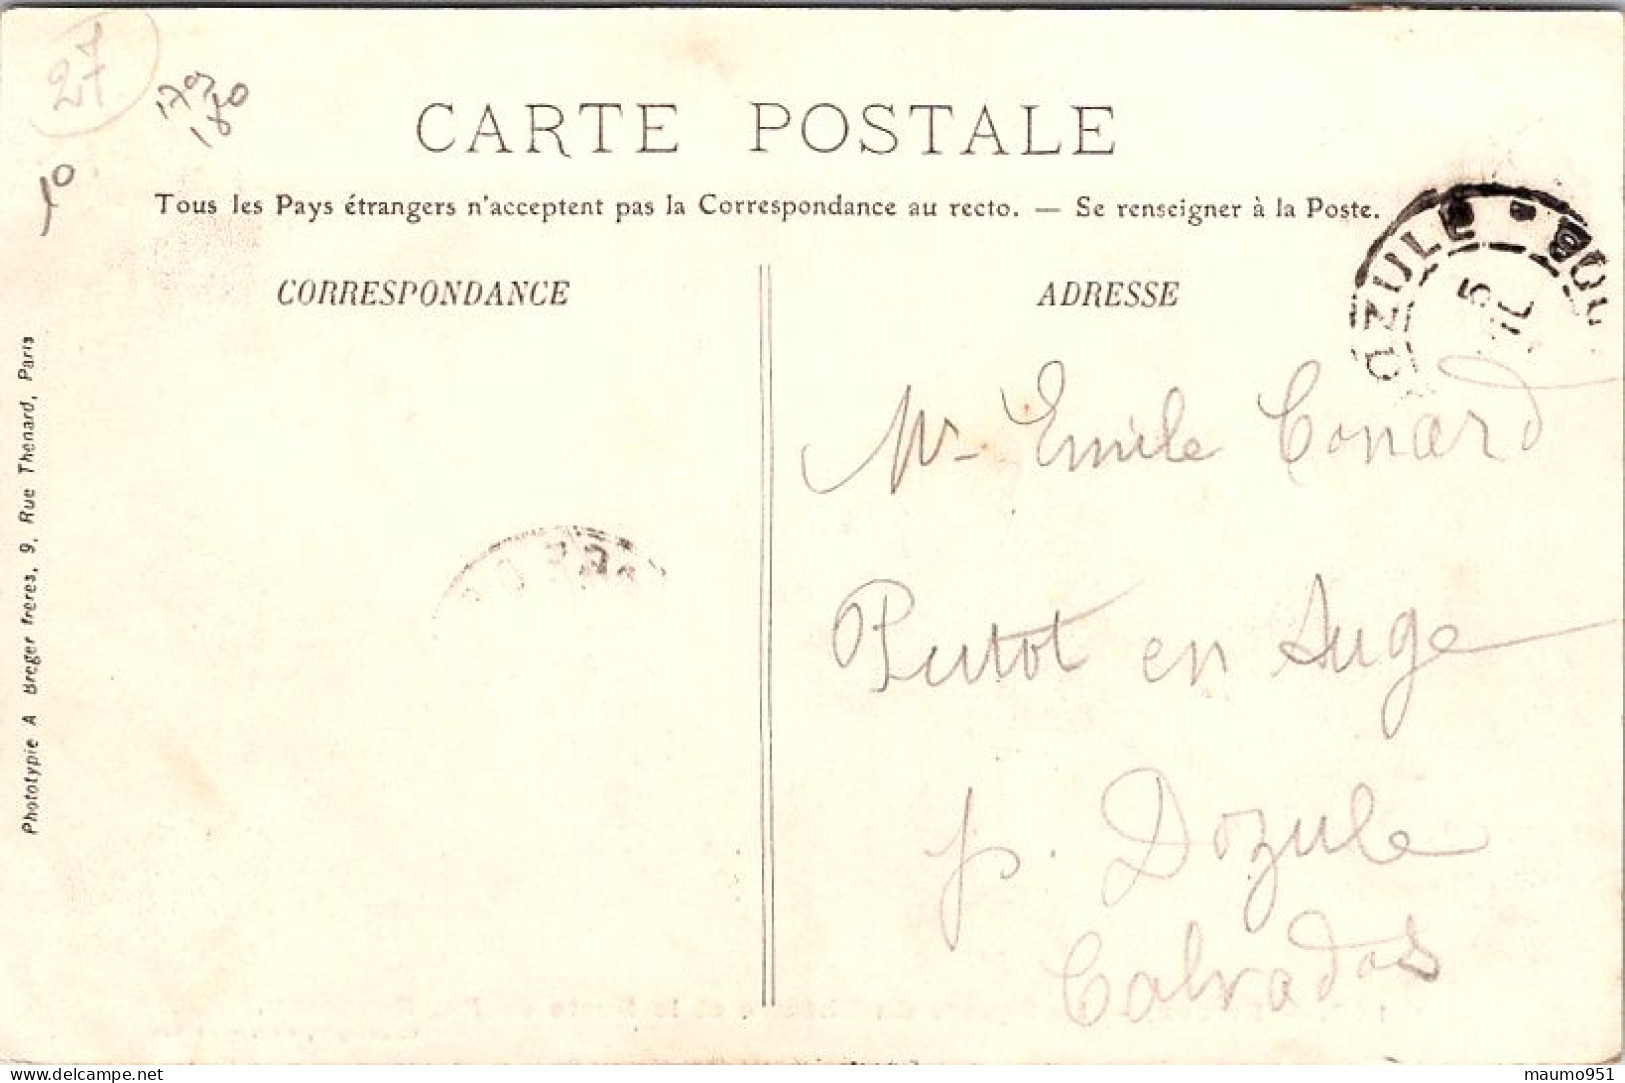 27
10
180
CARTE POSTALE
Tous les Pays étrangers n'acceptent pas la Correspondance au recto. — Se renseigner à la Poste.
CORRESPONDANCE
ADRESSE
OZULÉ
5
Mr Emile Conard
Putot en Auge
p. Dozule
Calvados
Phototypie A Breger frères, 9, Rue Thénard, Paris
www.delcampe.net
maumo951